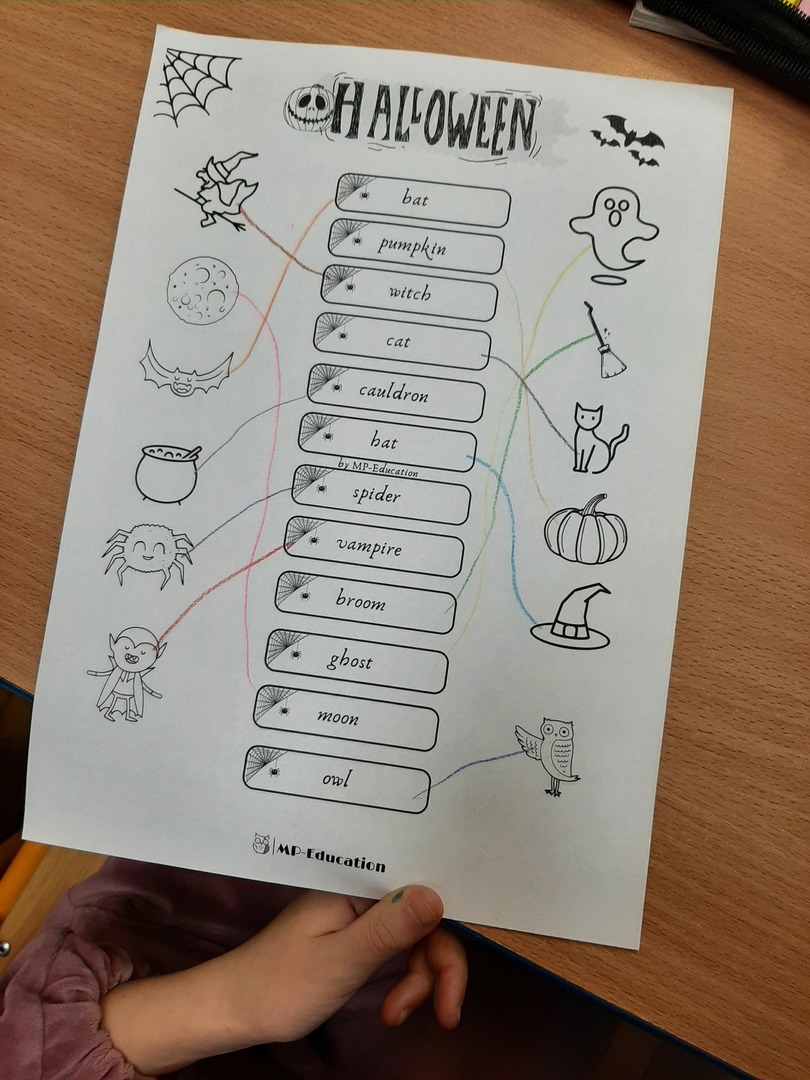 HALLOWEEN
bat
pumpkin
witch
cat
cauldron
hat
by MP-Education
spider
vampire
broom
ghost
moon
owl
MP-Education